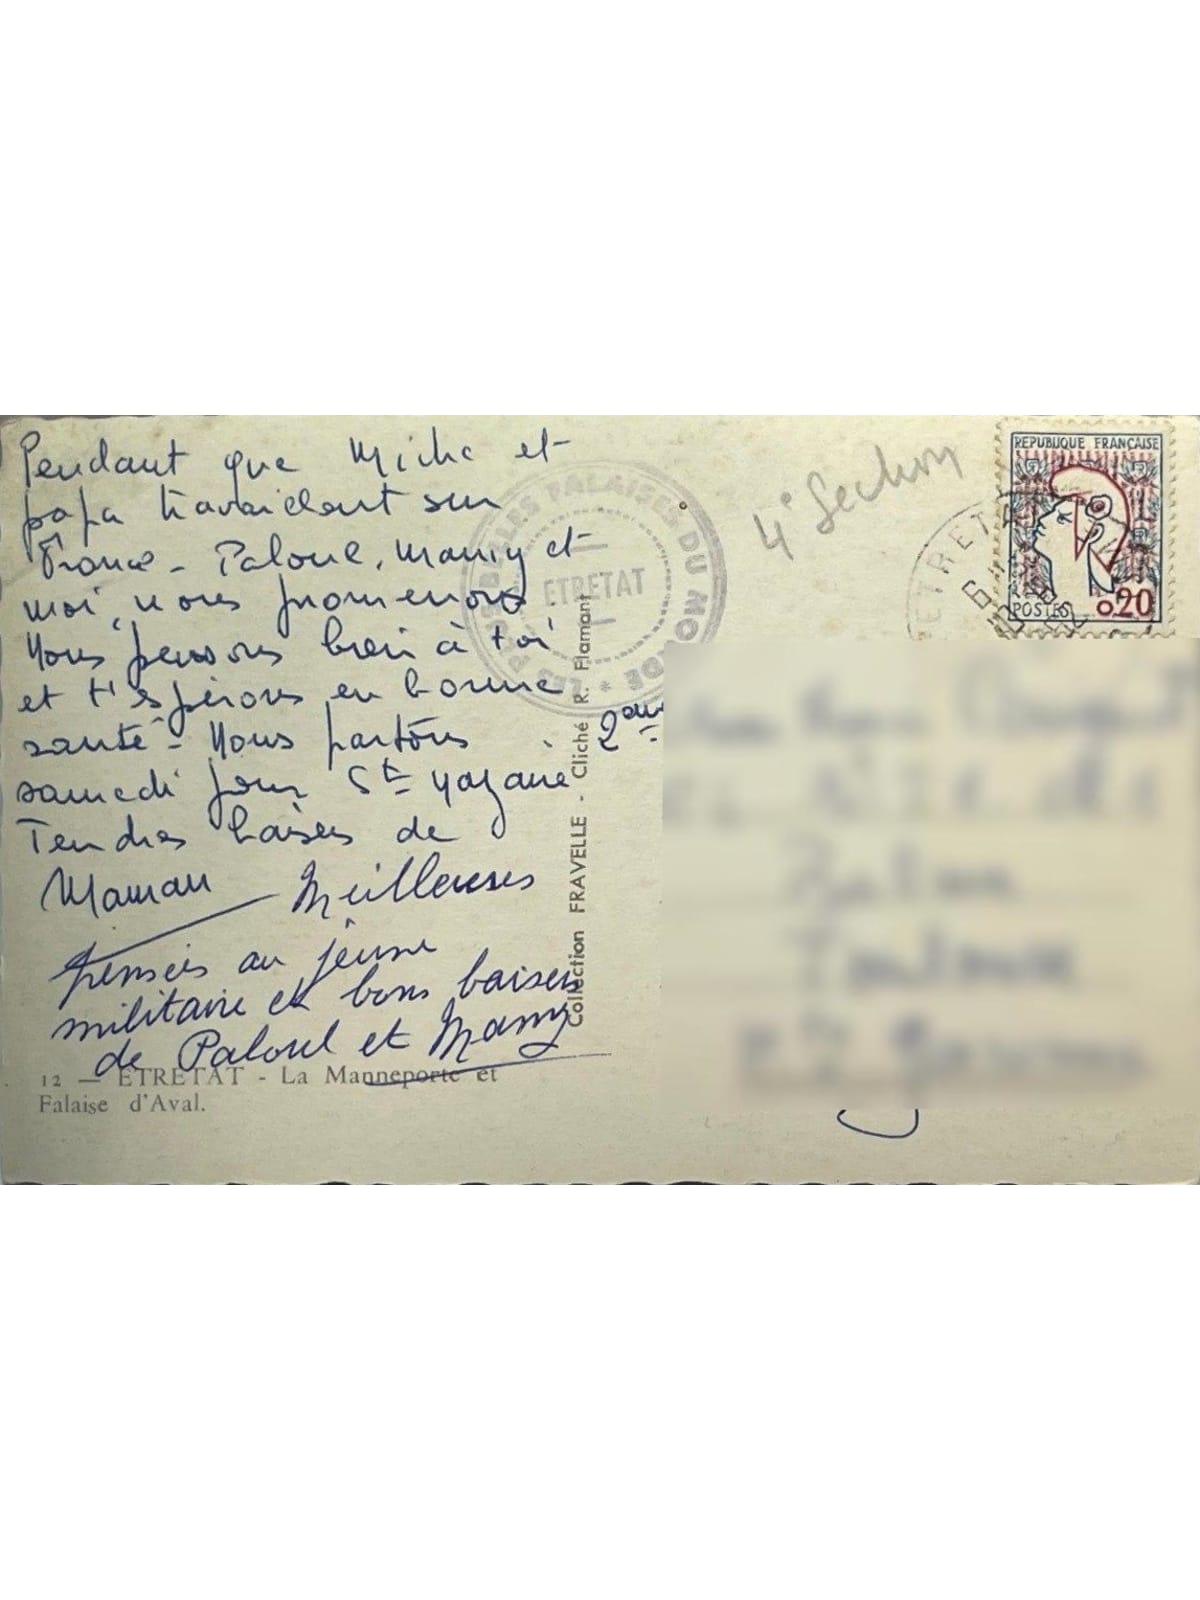 Pendant que Miche et
papa travaillent sur
France - Paloul, Mamy et
moi, nous promenons.
Nous pensons bien à toi
et t'espérons en bonne
santé - Nous partons
samedi pour St
Tendres baisers de
Maman
Meilleures
pensées au jeune
militaire et bons baisers
de Paloul et Mamy
12 — ETRETAT - La Manneporte et
Falaise d'Aval.
LES PLUS BELLES FALAISES DU MONDE *
ETRETAT
Collection FRAVELLE - Cliché R. Flamant
4e Section
ETRETAT
REPUBLIQUE FRANÇAISE
POSTES 0.20